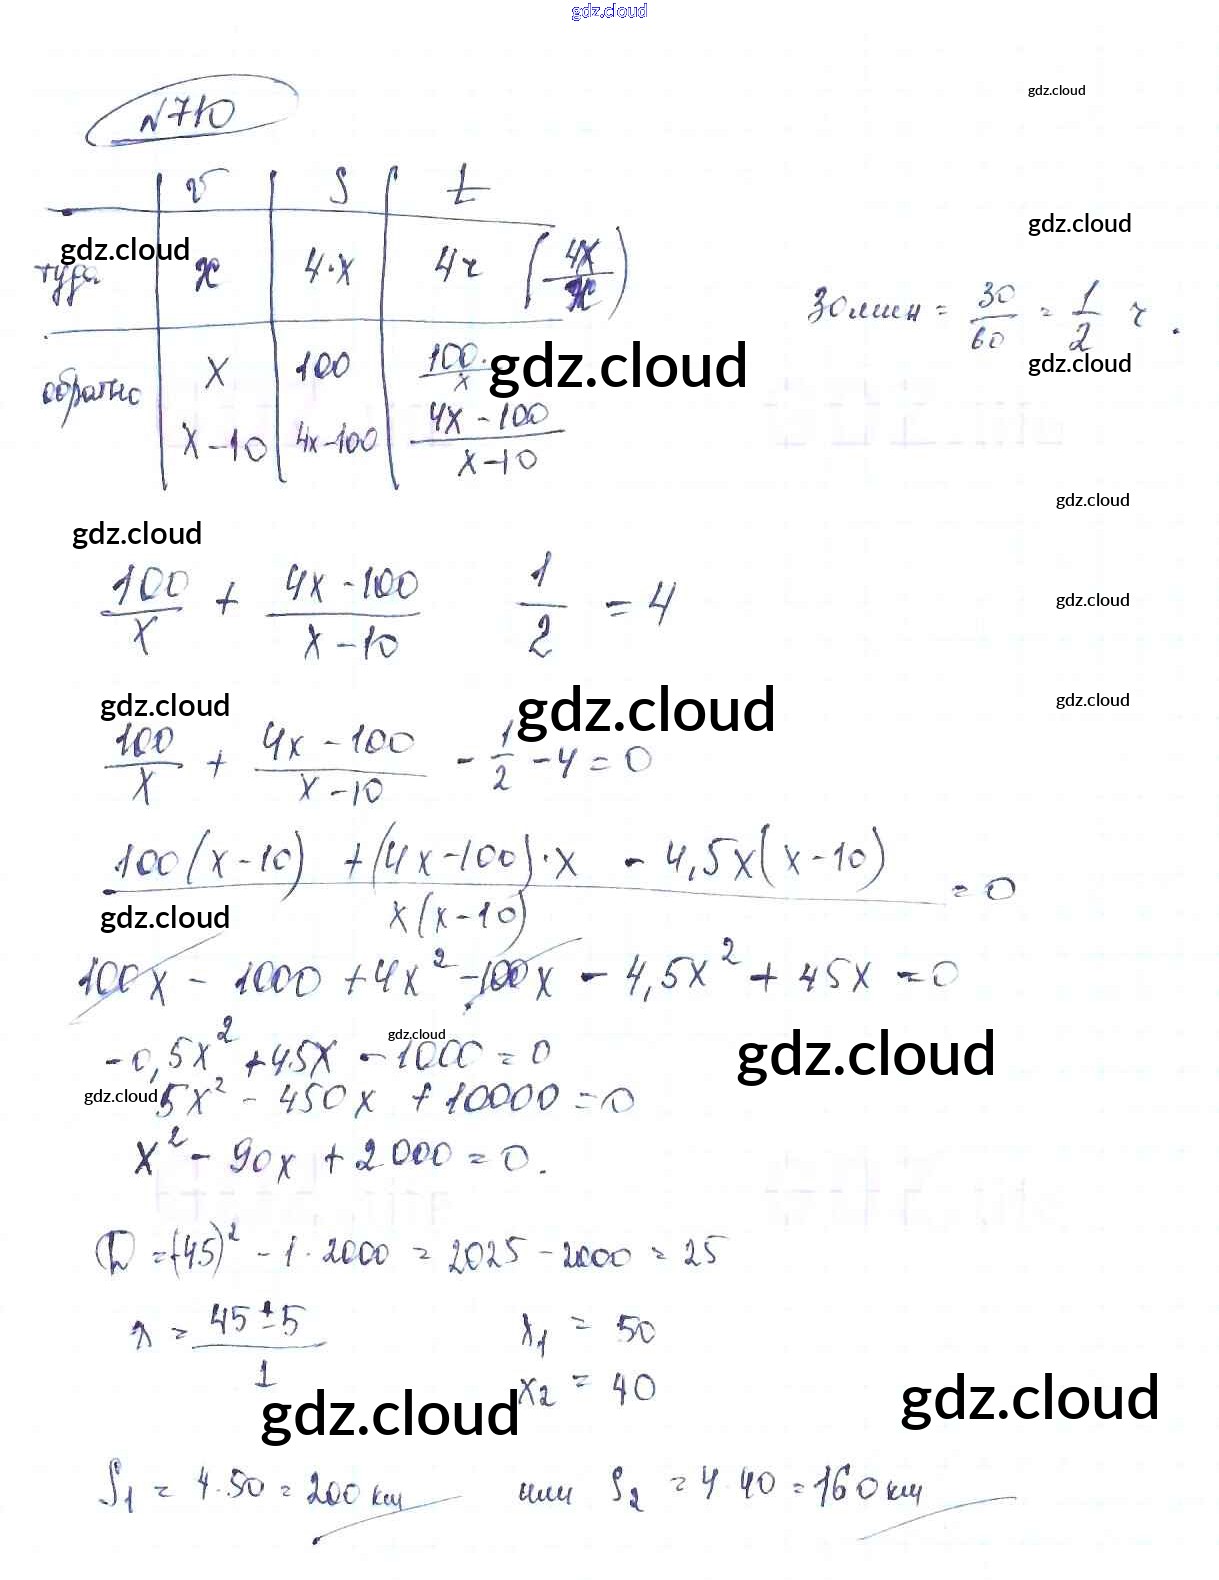 gdz.cloud
gdz.cloud
N 710
v | S | t
gdz.cloud
gdz.cloud
туда | x | 4·x | 4ч (4x/x)
30 мин = 30/60 = 1/2 ч.
обратно | x | 100 | 100/x
gdz.cloud
gdz.cloud
x-10 | 4x-100 | 4x-100/x-10
gdz.cloud
gdz.cloud
100/x + 4x-100/x-10 1/2 = 4
gdz.cloud
gdz.cloud
gdz.cloud
gdz.cloud
100/x + 4x-100/x-10 - 1/2 - 4 = 0
100(x-10) + (4x-100)·x - 4,5x(x-10) / x(x-10) = 0
gdz.cloud
100x - 1000 + 4x² - 100x - 4,5x² + 45x = 0
gdz.cloud
gdz.cloud
-0,5x² + 45x - 1000 = 0
gdz.cloud
5x² - 450x + 10000 = 0
x² - 90x + 2000 = 0.
D = (-45)² - 1·2000 = 2025 - 2000 = 25
x = 45±5/1 x₁ = 50
x₂ = 40
gdz.cloud
gdz.cloud
S₁ = 4·50 = 200 км или S₂ = 4·40 = 160 км